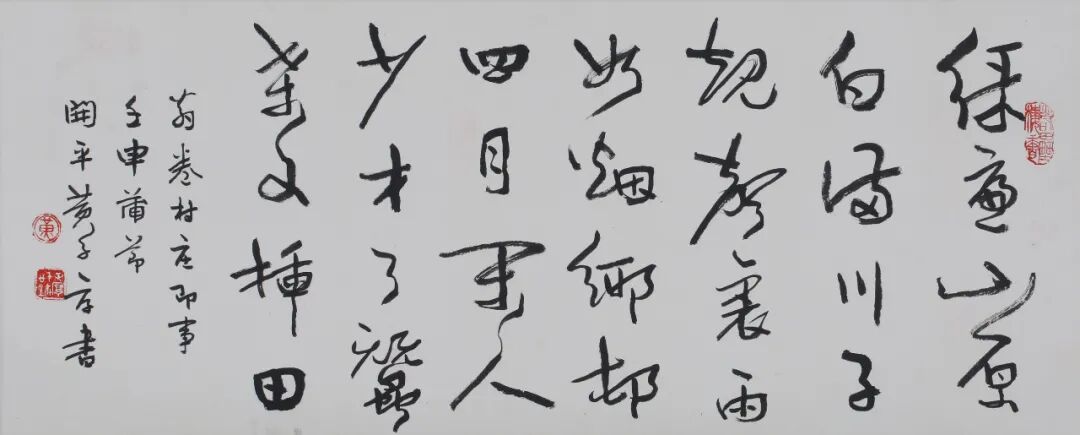 緑遍山原
白滿川子
規聲裏雨
如烟鄉邨
四月閒人
少才了蠶
桑又插田
翁卷村庄即事
壬申蒲節
開平黄子厚書
黄